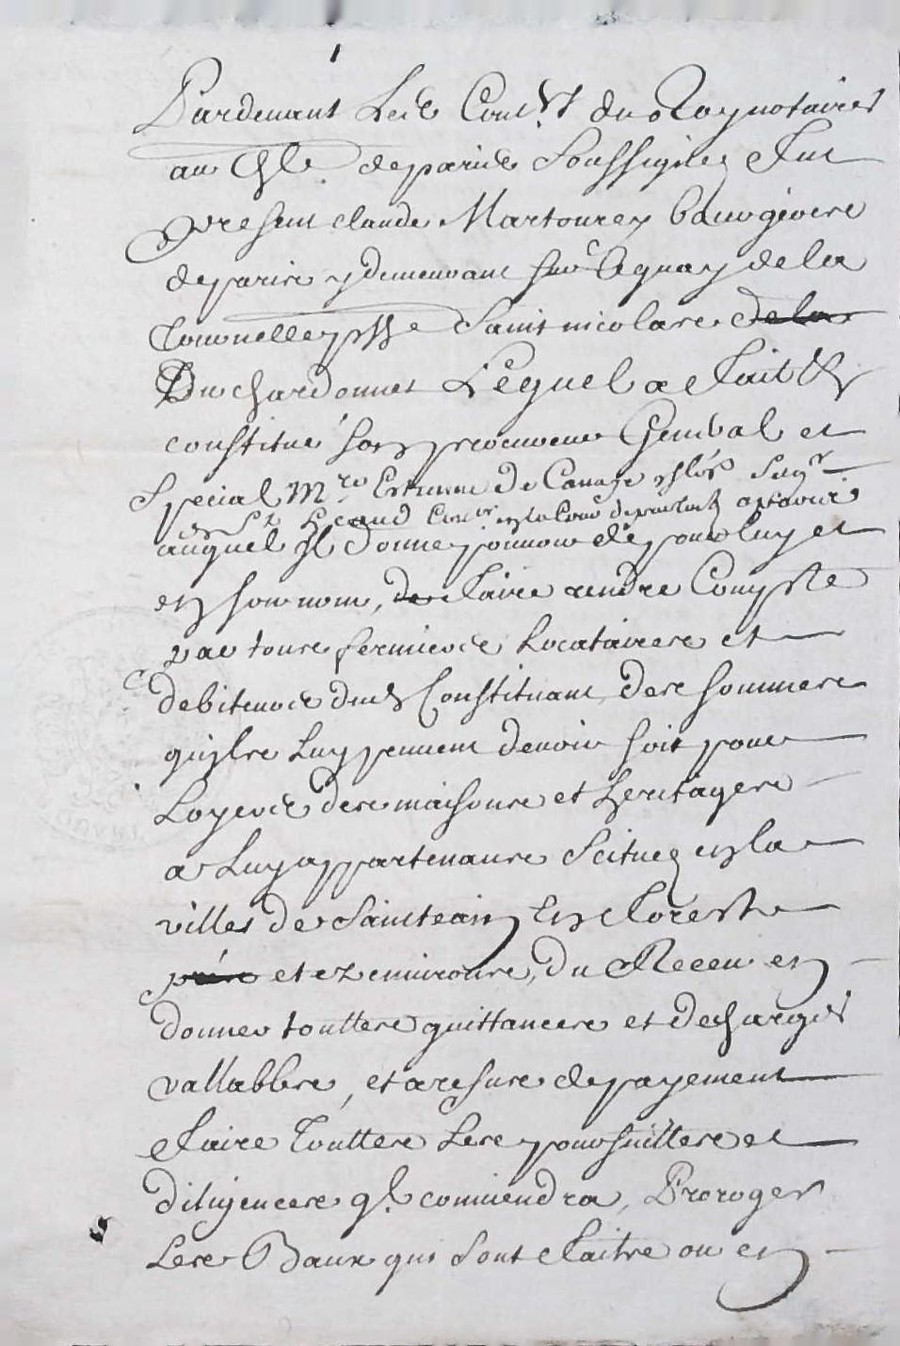 Pardevant Les Con.rs du Roy notaires
au Ch.le de paris Soussignez Fut
present claude Martourey bourgeois
de paris y demeurant sur le quay de la
Tournelle psse Saint nicolas de la
Du chardonnet Lequel a fait et
constitué son procureur General et
Special M.re de
auquel Il donne pouvoir de pour luy et
en son nom, de faire rendre Compte
par tous fermiers Locataires et
debiteurs dud Constituant des sommes
quils Luy peuvent devoir soit pour
Loyers des maisons et heritages
a Luy appartenans Scituez en la
ville de Saint en forest
et ez environs, du Receu en
donner touttes quittances et descharges
vallables, et a refus de payement
faire Touttes Les poursuittes et
diligences ql. conviendra, Proroger
Les Baux qui sont faits ou en